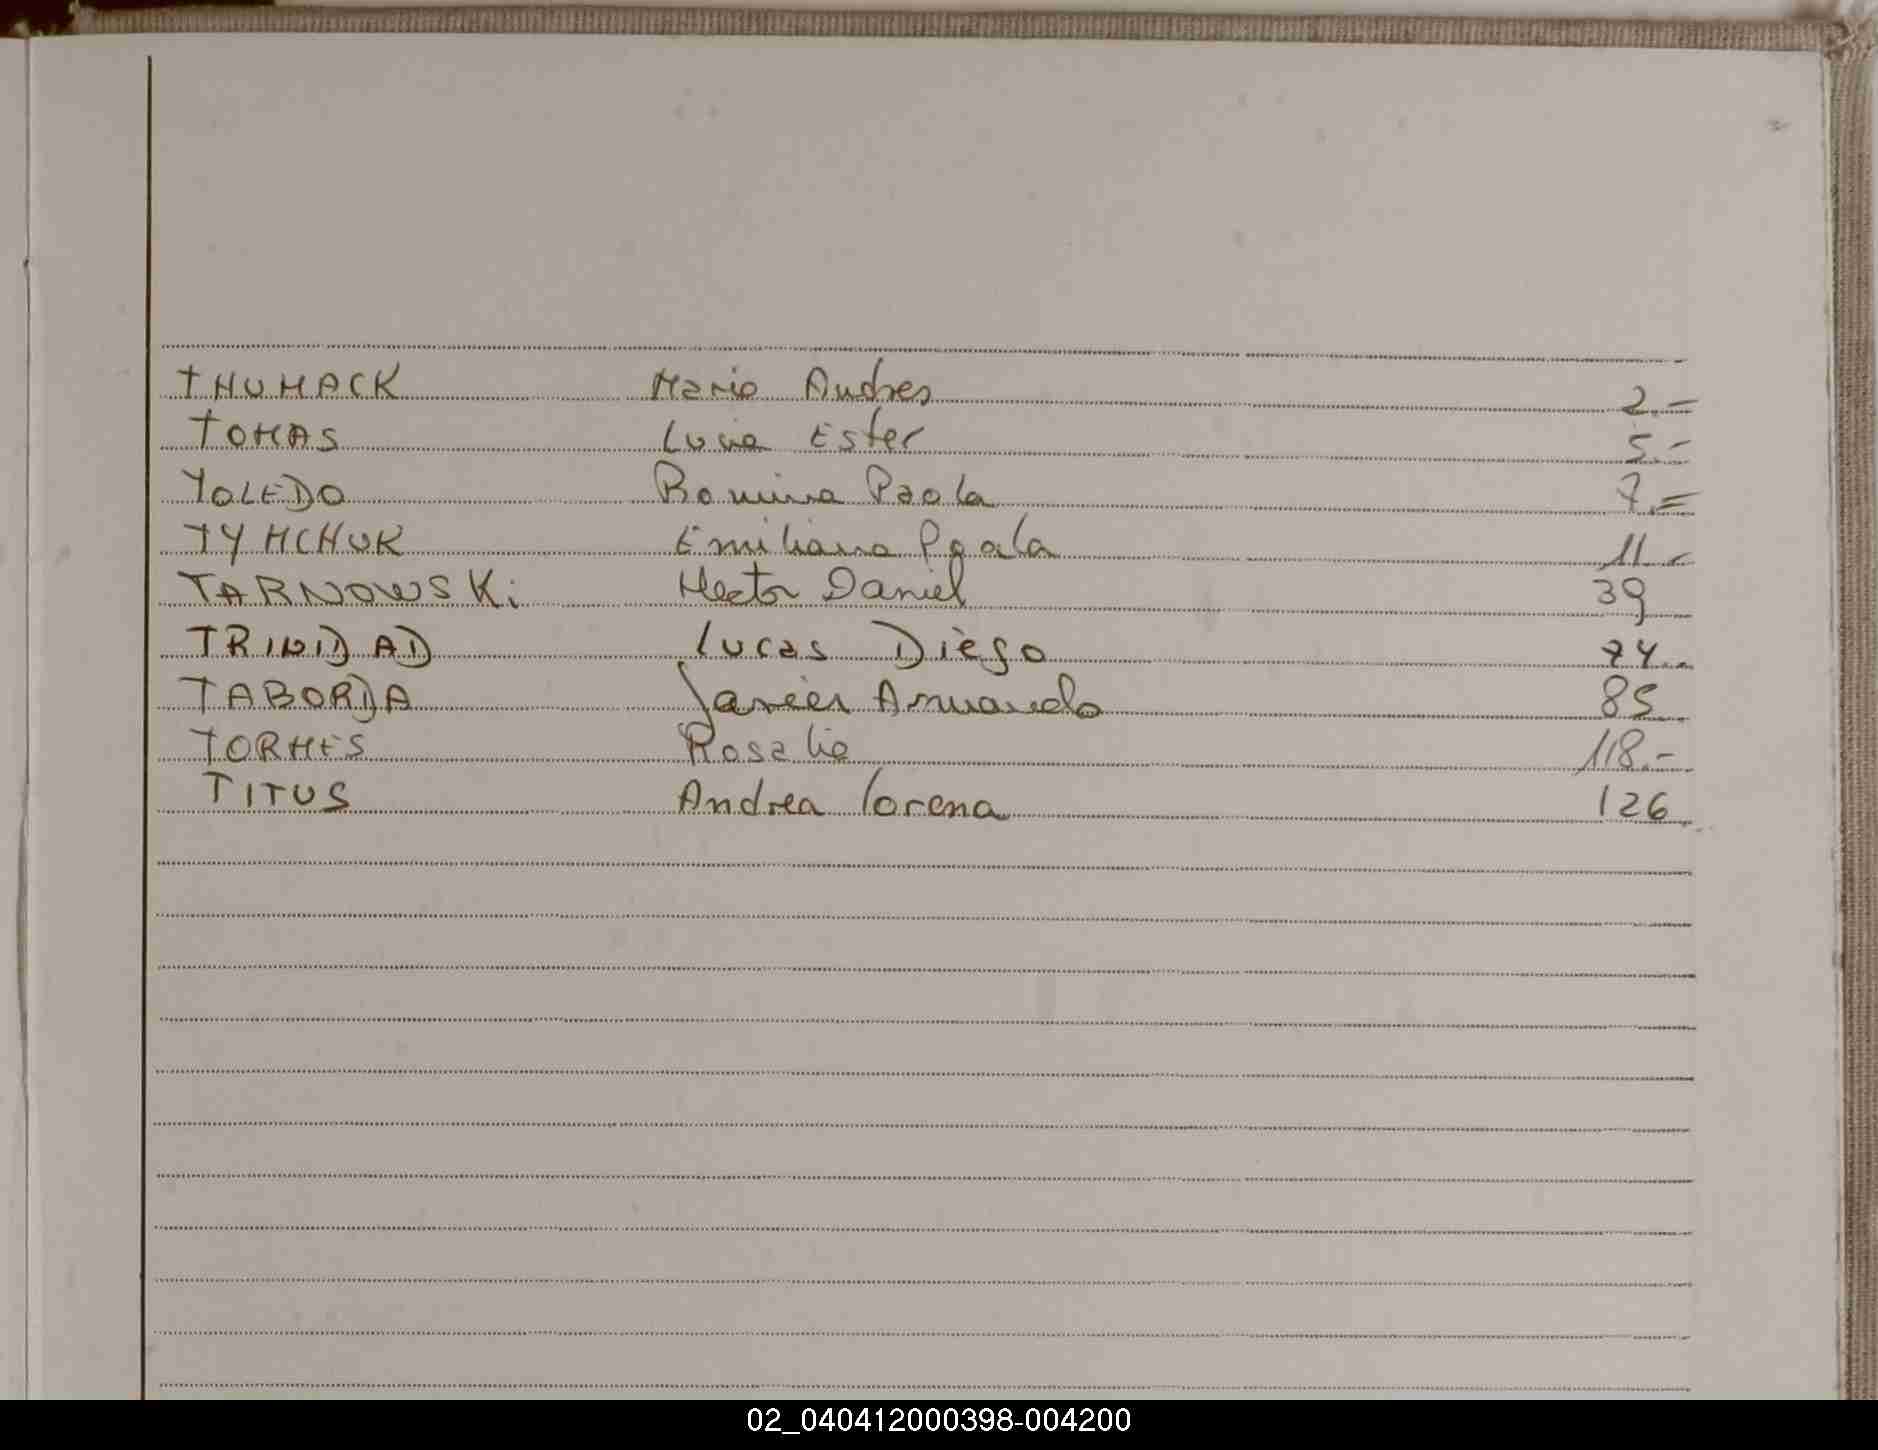 THUMACK Mario Andres 2.-
TOMAS Lucia Ester 5.-
TOLEDO Romina Paola 7.=
TYMCHUK Emiliana Paola 11.-
TARNOWSKi Hector Daniel 39
TRINIDAD Lucas Diego 74..
TABORDA Javier Armando 85.
TORMES Rosalia 118.-
TITUS Andrea Lorena 126.
02_040412000398-004200